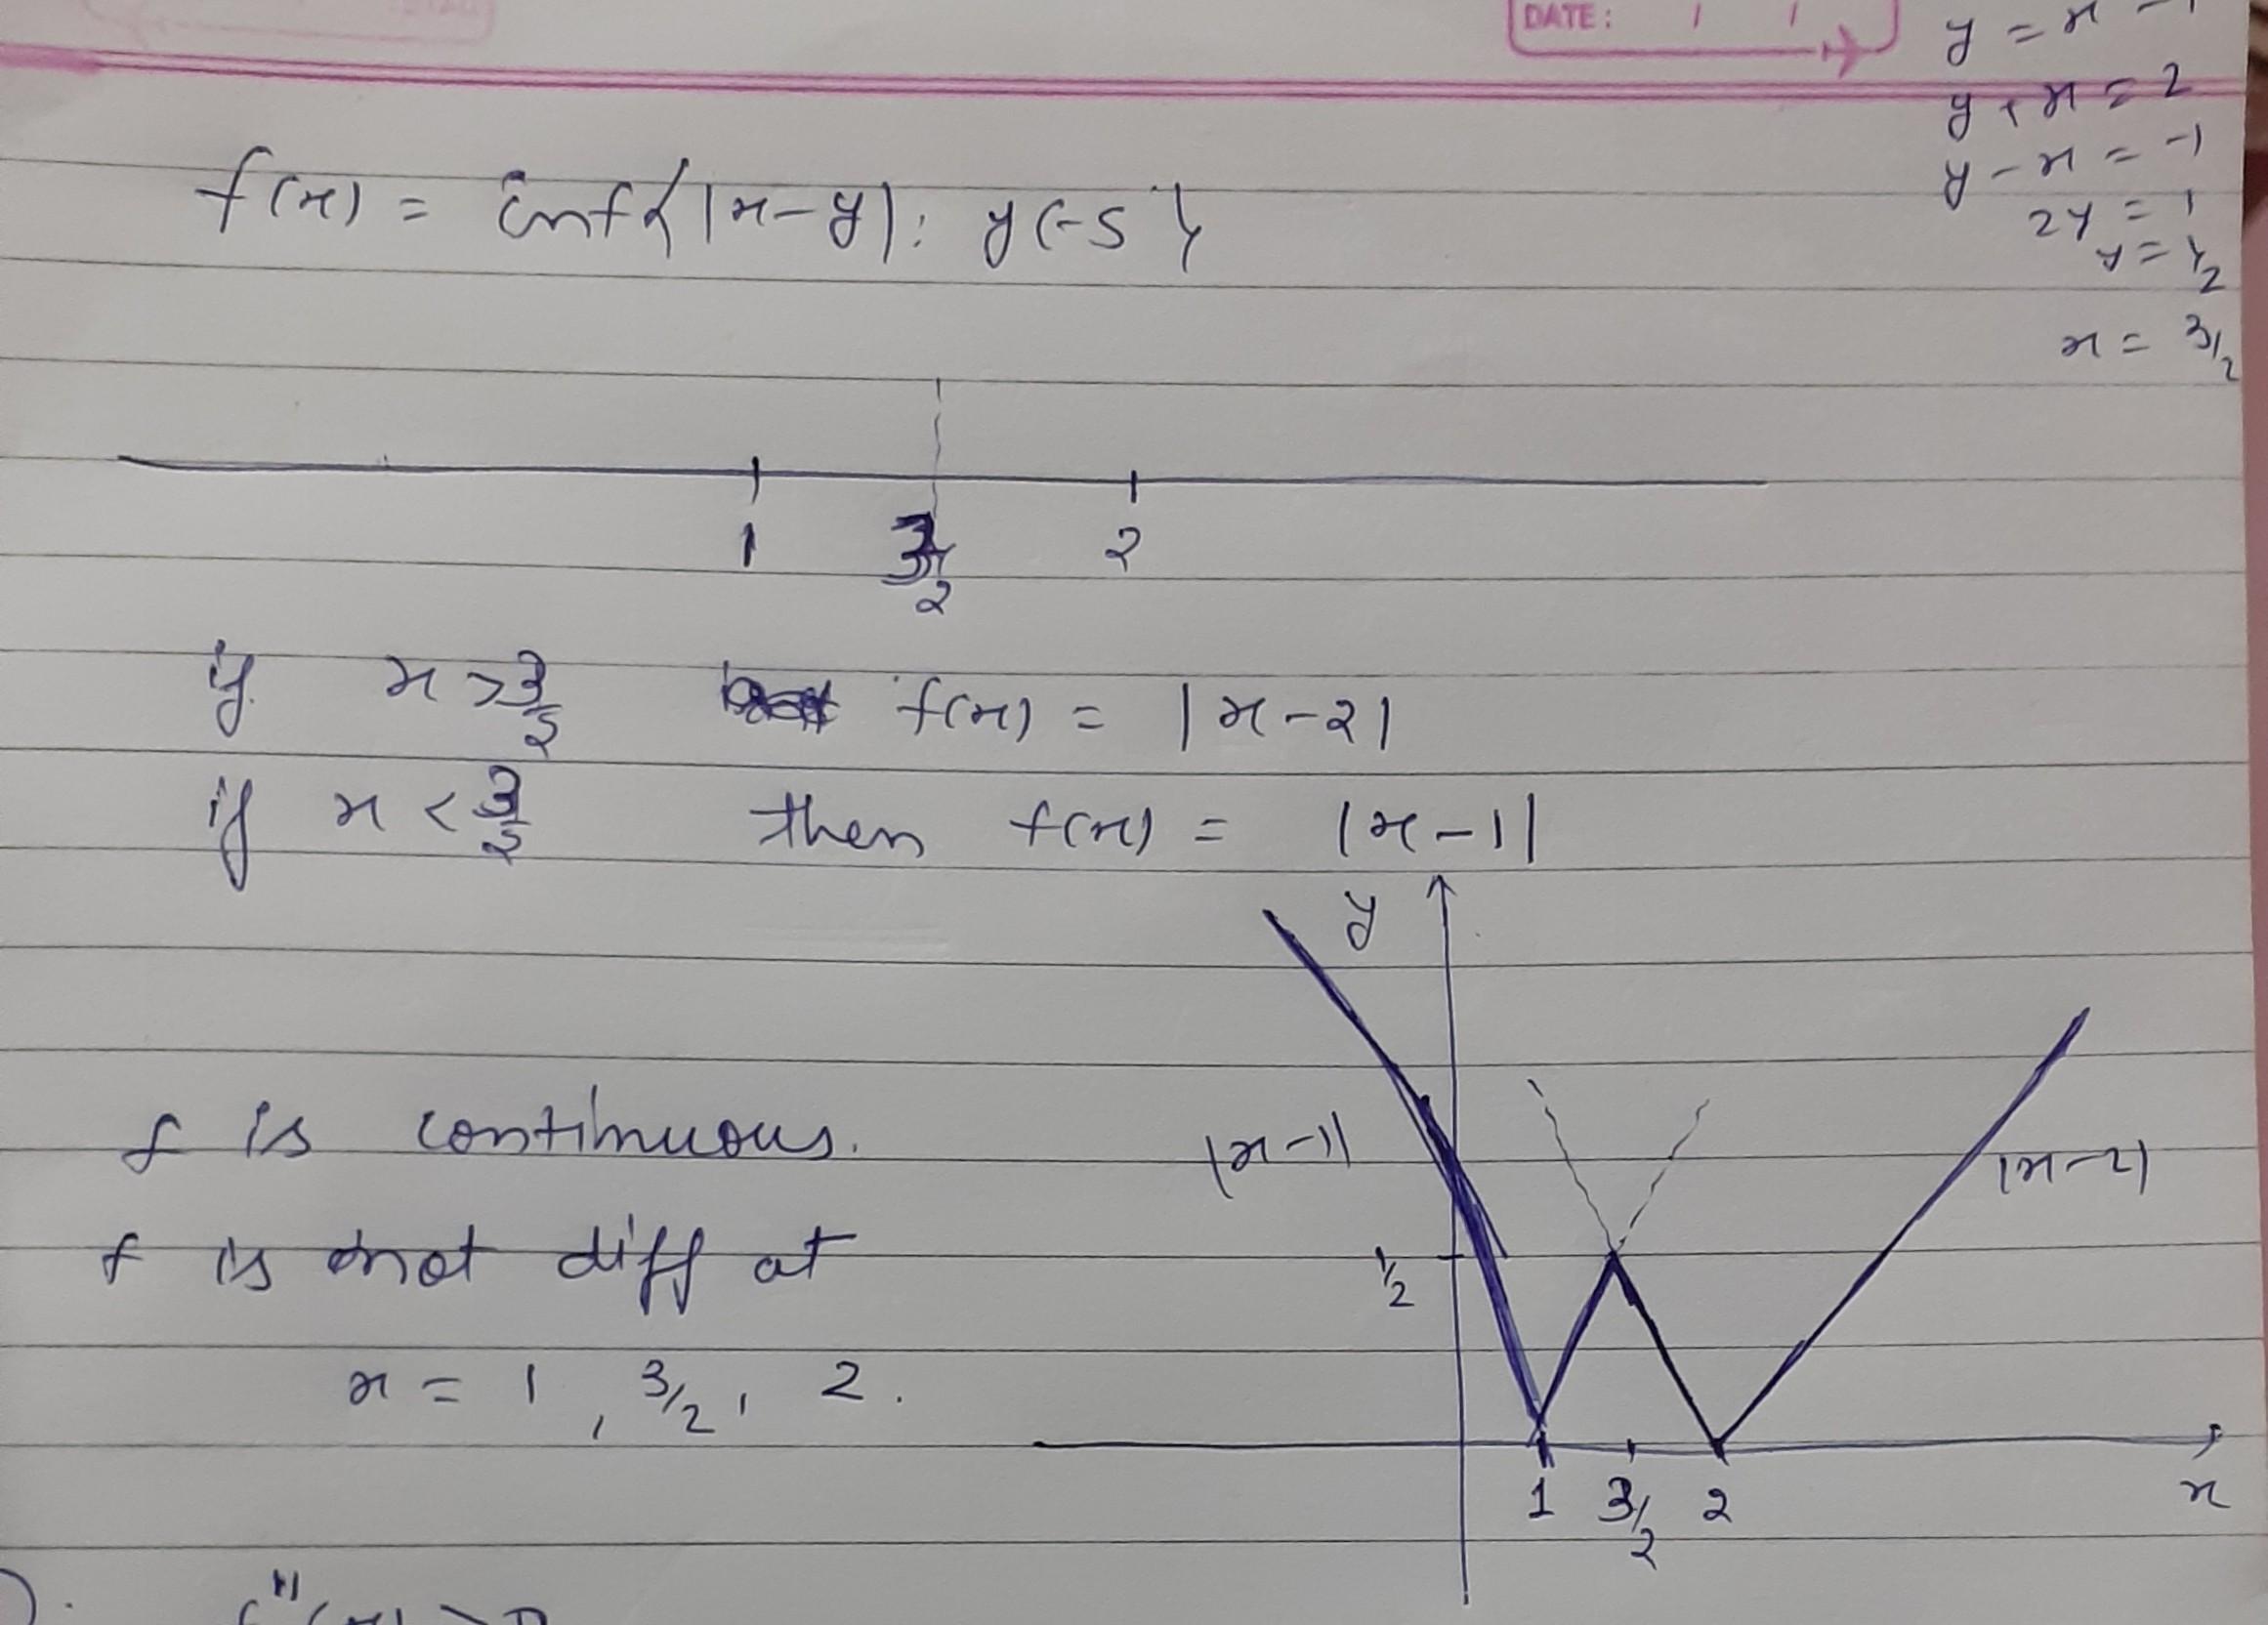 DATE: / /
y = x - 1
y + x = 2
y - x = -1
2y = 1
y = 1/2
x = 3/2
f(x) = inf{|x-y| : y ∈ S}
1 3/2 2
if x > 3/2 f(x) = |x-2|
if x < 3/2 then f(x) = |x-1|
y
f is continuous.
|x-1|
|x-2|
f is not diff at
1/2
x = 1, 3/2, 2.
1 3/2 2
x